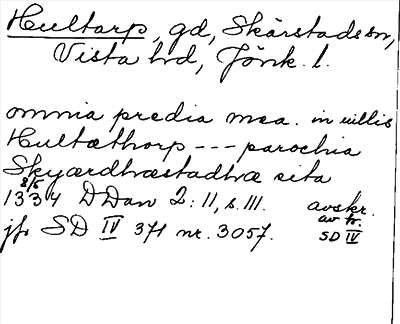 Hultarp, gd, Skärstads sn,
Vista hd, Jönk. l.
omnia predia mea. in uillis
Hultæthorp --- parochia
Skyærdhæstadhæ sita
8/5
1334 DDan 2: 11, s. 111. avskr.
av tr.
jfr SD IV 371 nr. 3057. SD IV